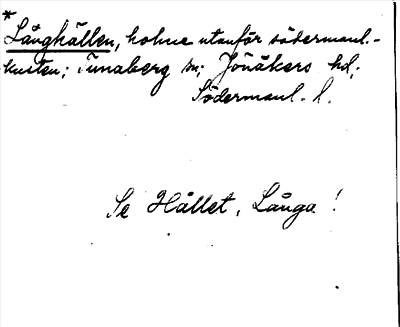 *
Långhällen, holme utanför södermanl.-
kusten; Tunaberg sn; Jönåkers hd;
Södermanl. l.
Se Hållet, Långa!